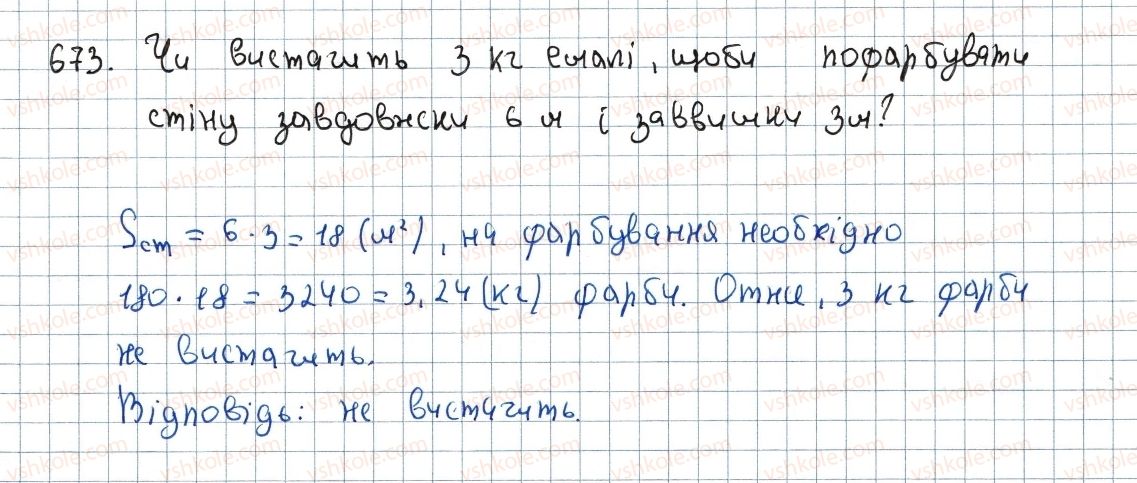 673. Чи вистачить 3 кг емалі, щоби пофарбувати
стіну завдовжски 6 м і заввишки 3м?
Sст = 6·3 = 18 (м²), на фарбування необхідно
180·18 = 3240 = 3,24 (кг) фарби. Отже, 3 кг фарби
не вистачить.
Відповідь: не вистачить.